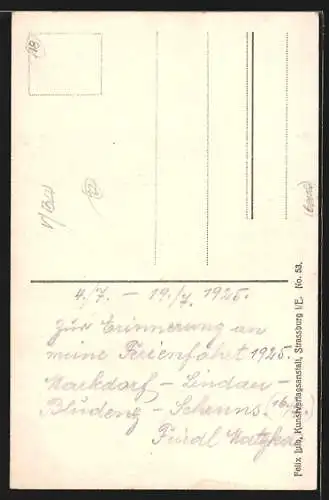 4./7. – 19./7. 1925.
Zur Erinnerung an
meine Ferienfahrt 1925.
Markdorf – Lindau –
Bludenz – Schruns.
Friedl
Felix Luib, Kunstverlagsanstalt, Strassburg i/E. No. 53.